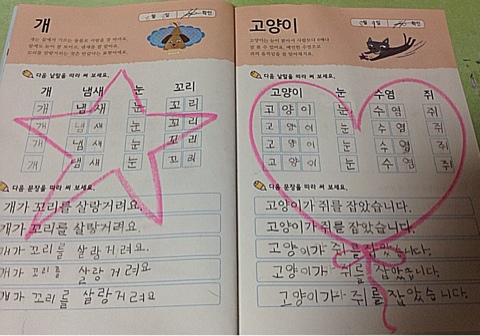 개
월 일 확인
다음 낱말을 따라 써 보세요.
개 냄새 눈 꼬리
개 냄 새 눈 꼬 리
개 냄 새 눈 꼬 리
개 냄 새 눈 꼬 리
개 냄 새 눈 꼬 리
다음 문장을 따라 써 보세요.
개가 꼬리를 살랑거려요.
개가 꼬리를 살랑거려요.
개가 꼬리를 살랑거려요
개가 꼬리를 살랑거려요
개가 꼬리를 살랑거려요
고양이
월 일 확인
다음 낱말을 따라 써 보세요.
고양이 눈 수염 쥐
고 양 이 눈 수 염 쥐
고 양 이 눈 수 염 쥐
고 양 이 눈 수 염 쥐
고 양 이 눈 수 염 쥐
다음 문장을 따라 써 보세요.
고양이가 쥐를 잡았습니다.
고양이가 쥐를 잡았습니다.
고양이가 쥐를 잡았습니다.
고양이가 쥐를 잡았습니다.
고양이가 쥐를 잡았습니다.